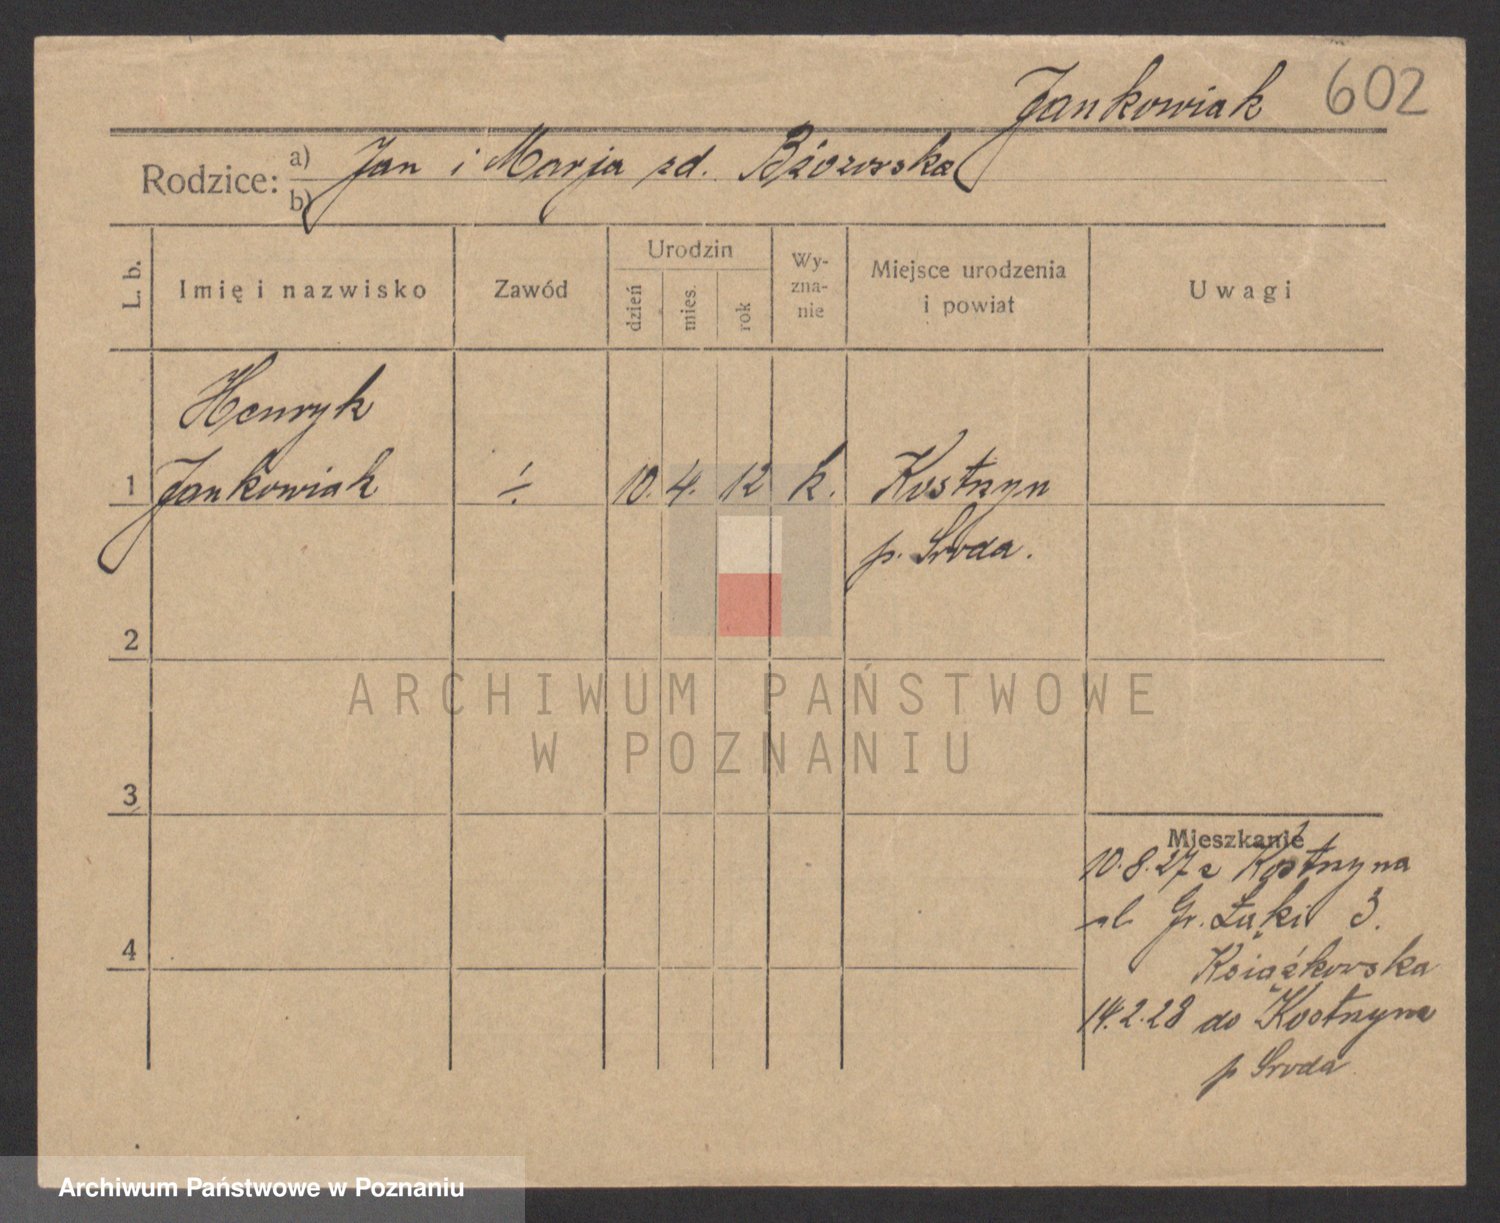 Jankowiak 602
Rodzice: a) Jan i Marja zd.
b)
L. b.
Imię i nazwisko
Zawód
Urodzin
dzień
mies.
rok
Wy-
zna-
nie
Miejsce urodzenia
i powiat
Uwagi
Henryk
1 Jankowiak ÷ 10. 4. 12 k. Kostrzyn
p. Sroda.
2
3
4
Mieszkanie
10.8.27 z Kostrzyna
ul. Gr. Łąki 3.
Książkowska
14.2.28 do Kostrzyna
p Sroda
ARCHIWUM PAŃSTWOWE
W POZNANIU
Archiwum Państwowe w Poznaniu